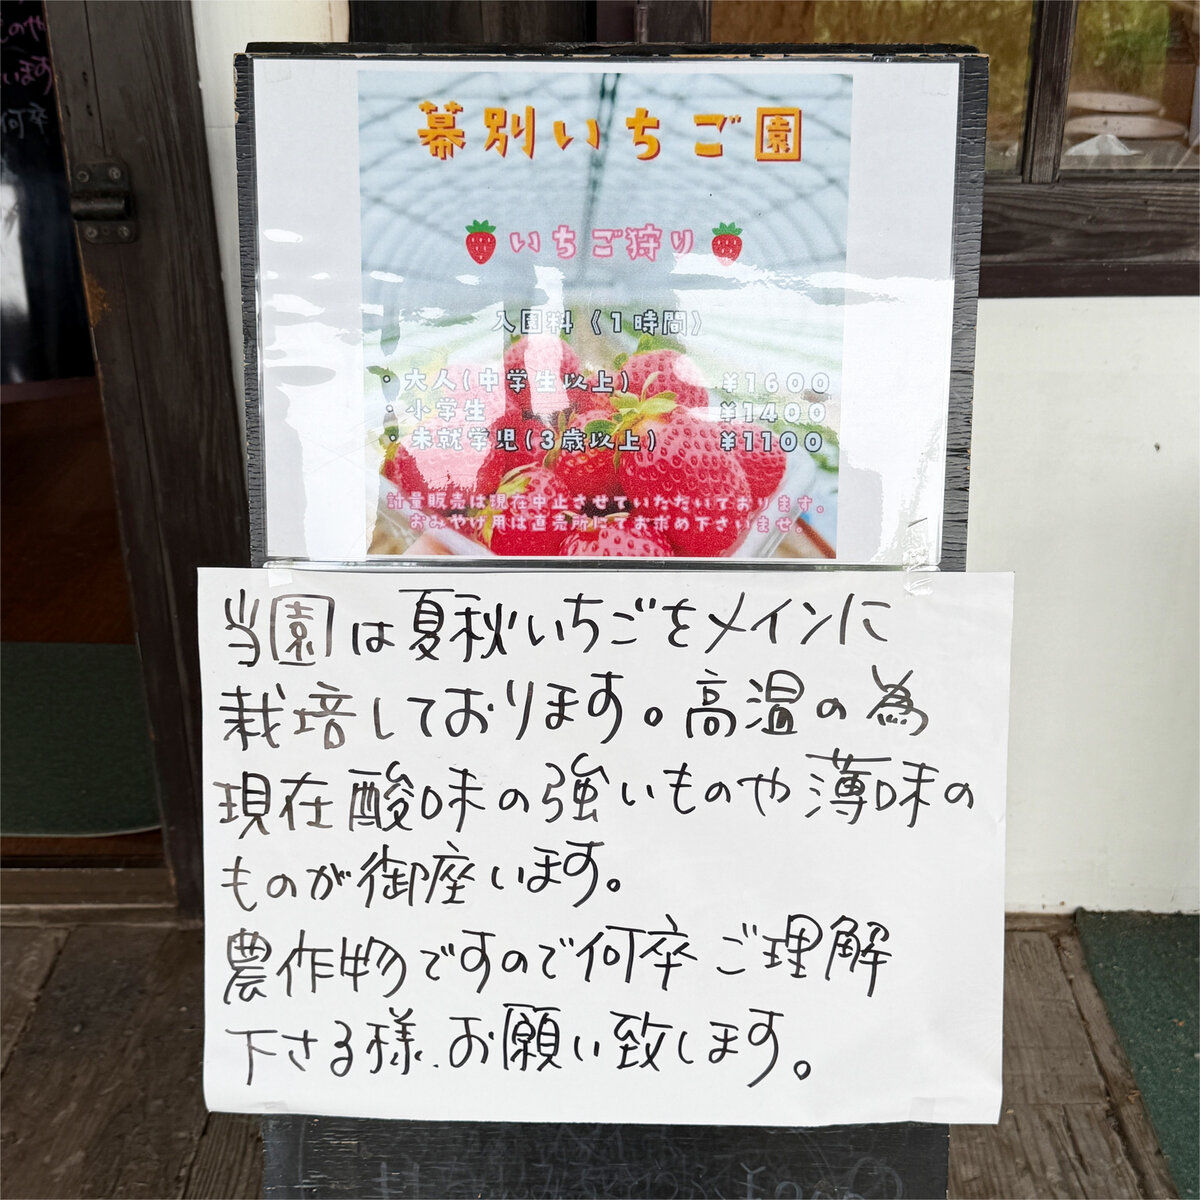 幕別いちご園
いちご狩り
入園料《1時間》
・大人(中学生以上) ¥1600
・小学生 ¥1400
・未就学児(3歳以上) ¥1100
計量販売は現在中止させていただいております。
おみやげ用は直売所にてお求め下さいませ。
当園は夏秋いちごをメインに
栽培しております。高温の為
現在酸味の強いものや薄味の
ものが御座います。
農作物ですので何卒ご理解
下さる様、お願い致します。
います
何卒